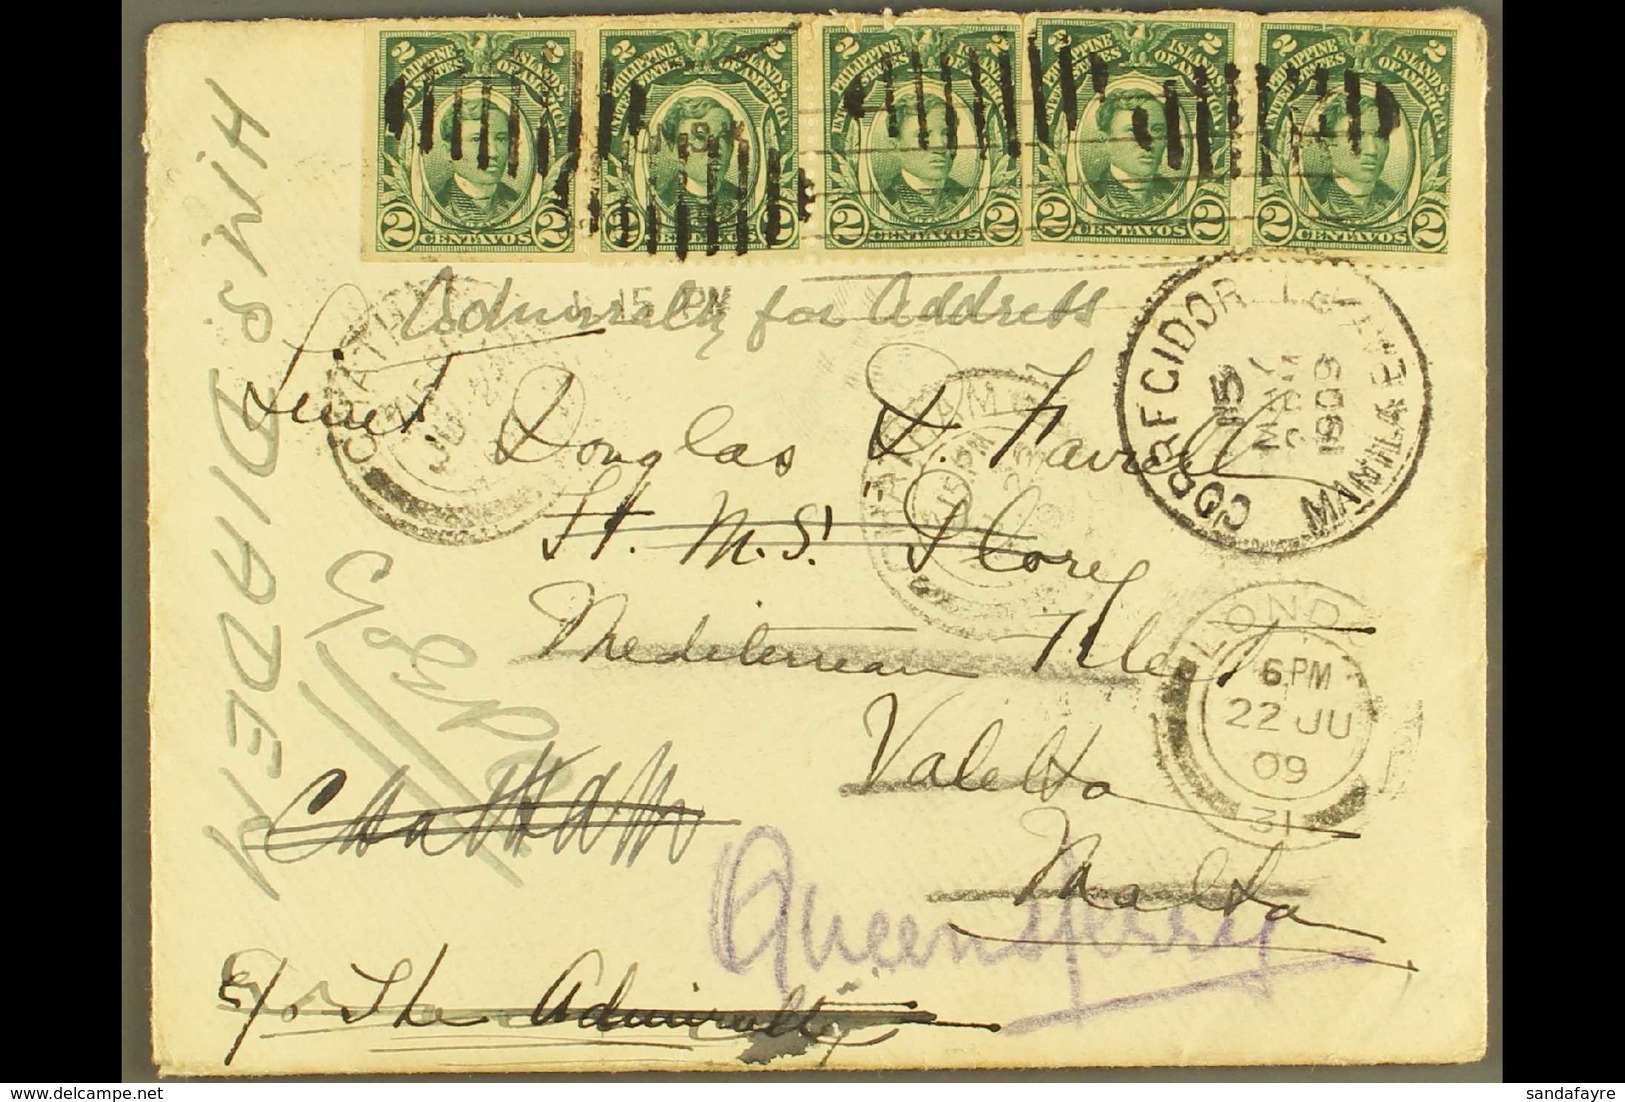 2 PHILIPPINE ISLANDS, 2
UNITED STATES OF AMERICA
2 CENTAVOS 2
2 PHILIPPINE ISLANDS, 2
UNITED STATES OF AMERICA
2 CENTAVOS 2
2 PHILIPPINE ISLANDS, 2
UNITED STATES OF AMERICA
2 CENTAVOS 2
2 PHILIPPINE ISLANDS, 2
UNITED STATES OF AMERICA
2 CENTAVOS 2
2 PHILIPPINE ISLANDS, 2
UNITED STATES OF AMERICA
2 CENTAVOS 2
Admiralty for Address
15 PM
CORREGIDOR
MAY
1909
MANILA
Lieut Douglas D. Favrell
H.M.S. Florey
Mediterrean Fleet
Valetta
Malta
HMS DIADEM
CHATHAM
CHATHAM
15 PM
c/o GPO
LONDON
6.PM
22 JU
09
31
Chatham
Queensferry
c/o The Admiralty
sandafayre